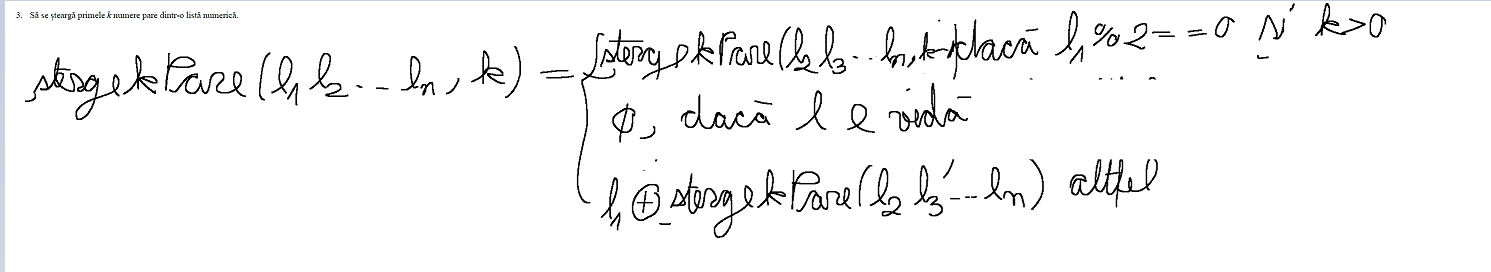 3. Să se șteargă primele k numere pare dintr-o listă numerică.
ștergekPare(l₁l₂...lₙ, k) = { ștergekPare(l₂l₃...lₙ, k-1) dacă l₁%2==0 și k>0
∅, dacă l e vidă
l₁ ⊕ ștergekPare(l₂l₃...lₙ) altfel